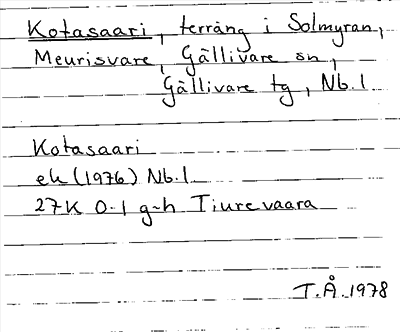 Kotasaari, terräng i Solmyran,
Meurisvare, Gällivare sn,
Gällivare tg, Nb.l
Kotasaari
ek (1976) Nb.l
27K 0-1 g-h Tiurevaara
T.Å.1978